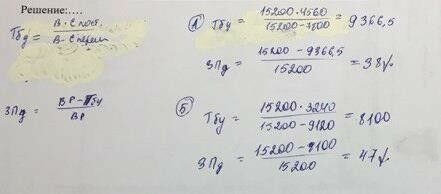 Решение:....
Тбу = В · Спост. / В - Сперем
ЗПд = ВР - Тбу / ВР
А) Тбу = 15200 · 4560 / 15200 - 7800 = 9366,5
ЗПд = 15200 - 9366,5 / 15200 = 38%
Б Тбу = 15200 · 3240 / 15200 - 9120 = 8100
ЗПд = 15200 - 8100 / 15200 = 47%